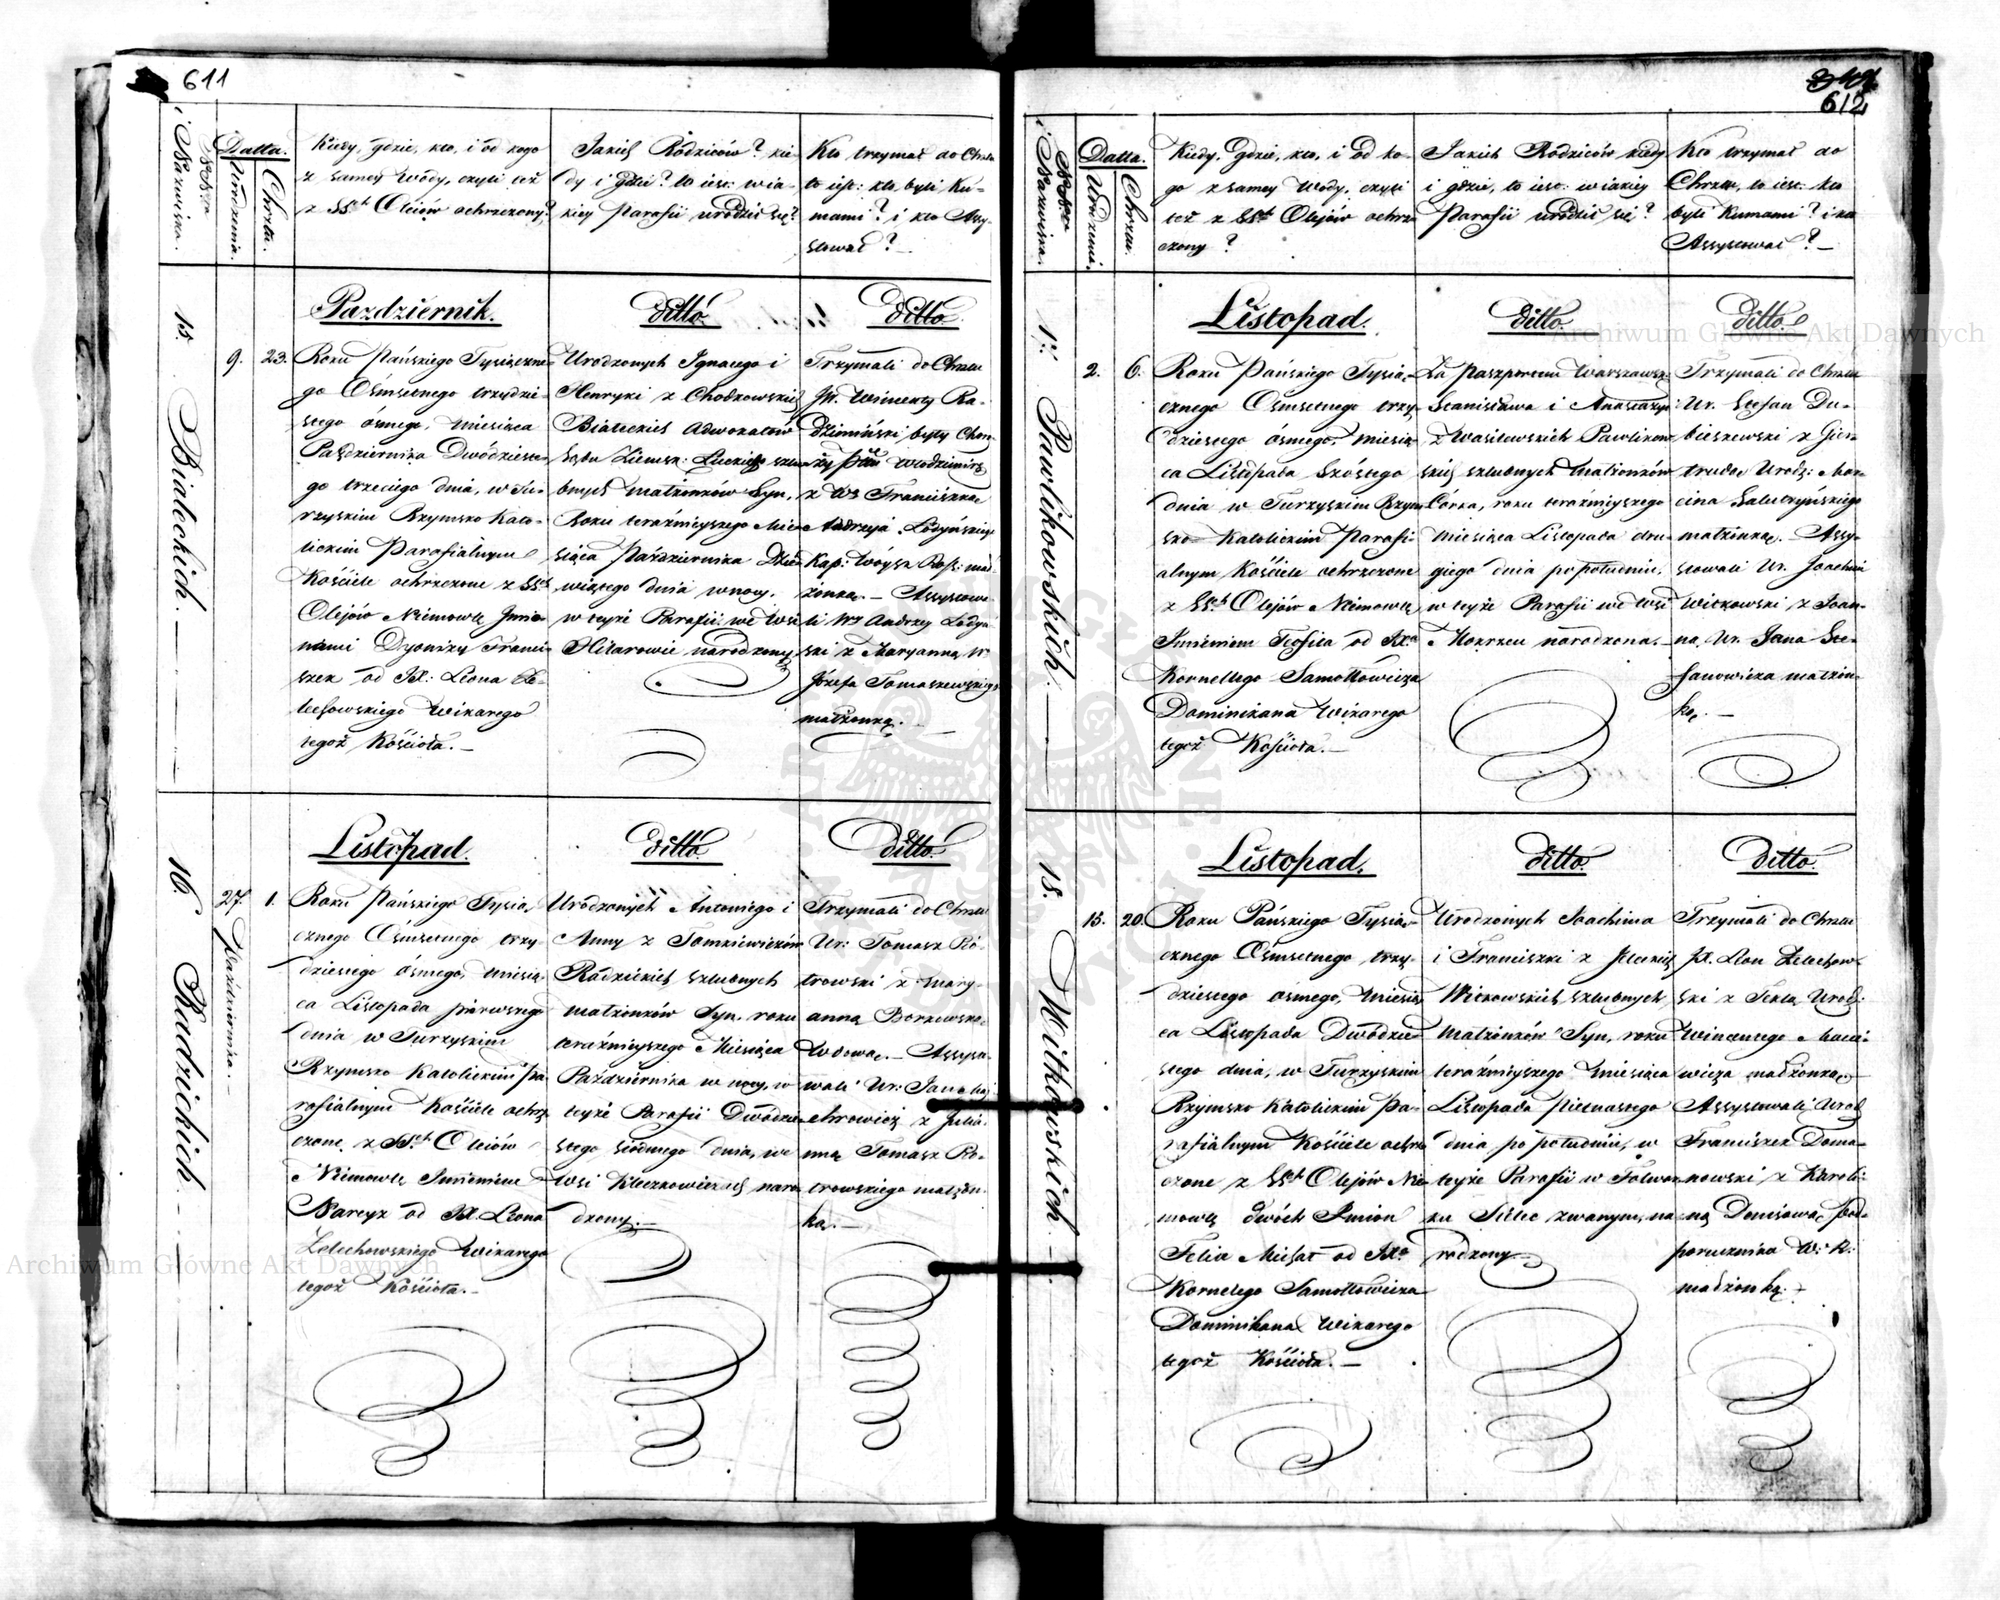 611
Numer i Nazwiska.
Datta.
Urodzenia.
Chrztu.
Kiedy, gdzie, kto, i od kogo
z samey Wody, czyli też
z SSch Oleiów ochrzczony?
Jakich Rodziców? kie-
dy i gdzie? to iest: w ia-
kiey Parafii urodził się?
Kto trzymał do Chrztu
to iest: kto byli Ku-
mami? i kto Assy-
stował?
15. Białeckich.
9. 23.
Pazdziernik.
Roku Pańskiego Tysiączne-
go Ośmsetnego trzydzie-
stego ósmego, miesiąca
Października Dwódzieste-
go trzeciego dnia, w Tu-
rzyskim Rzymsko Kato-
lickim Parafialnym
Kościele ochrzczone z SSch
Olejów Niemowlę Jmio-
nami Dyonizy Franci-
szek od JX: Leona Że-
lechowskiego Wikarego
tegoż Kościoła.
ditto
Urodzonych Ignacego i
Henryki z Chodkowskich
Białeckich Adwokatów
Sądu Ziemsk: Łuckiego szlu-
bnych małżonków Syn,
Roku teraźnieyszego Mie-
siąca Października Dzie-
wiątego dnia w nocy,
w teyże Parafii we Wsi
Hitarowie narodzony
ditto
Trzymali do Chrztu
JW. Wincenty Ra-
dzimiński były Chorą-
ży Włodzimirs:
z Franciszką
Andrzeja Łodyńskiego
Kap: Woysk Ross: mał-
żonką. — Assystowa-
li Andrzey Łodyń-
ski z Maryanną
Józefa Tomaszewskiego
małżonką.
16. Radzickich.
27. Października. 1.
Listopad.
Roku Pańskiego Tysią-
cznego Ośmsetnego trzy-
dziestego ósmego, miesią-
ca Listopada pierwszego
dnia w Turzyskim
Rzymsko Katolickim Pa-
rafialnym Kościele ochrz-
czone z SSch Oleiów
Niemowlę Jmieniem
Narcyz od JX. Leona
Żelechowskiego Wikarego
tegoż Kościoła.
ditto
Urodzonych Antoniego i
Anny z Tomkiewiczów
Radzickich szlubnych
małżonków Syn, roku
teraźnieyszego Miesiąca
Października w nocy, w
teyże Parafii Dwódzie-
stego siódmego dnia, we
Wsi Kleczkowiczach naro-
dzony.
ditto
Trzymali do Chrztu
Ur: Tomasz Ró-
trowski z Mary-
anną Borkowską
Wdową. — Assysto-
wali Ur: Jana
z Julia-
nną Tomasz Ro-
trowskiego małżon-
ką.
612
Numer i Nazwiska.
Datta.
Urodzenia.
Chrztu.
Kiedy, gdzie, kto, i od ko-
go z samey Wody, czyli
też z SSch Olejów ochrz-
czony?
Jakich Rodziców kiedy
i gdzie, to iest: w iakiey
Parafii urodził się?
Kto trzymał do
Chrztu, to iest: kto
byli Kumami? i kto
Assystował?
17. Pawlikowskich.
2. 6.
Listopad.
Roku Pańskiego Tysią-
cznego Ośmsetnego trzy-
dziestego ósmego, miesią-
ca Listopada Szóstego
dnia w Turzyskim Rzym-
sko Katolickim Parafi-
alnym Kościele ochrzczone
z SSch Olejów Niemowlę
Jmieniem Teofila od JXa
Kornellego Samottowicza
Dominikana Wikarego
tegoż Kościoła.
ditto
Za Paszportem Warszawsk:
Stanisława i Anastazyi
z Wasilewskich Pawlikow-
skich szlubnych małżonków
Córka, roku teraźnieyszego
miesiąca Listopada dru-
giego dnia po południu,
w teyże Parafii we Wsi
Mokrzcu narodzona.
ditto
Trzymali do Chrztu
Ur. Stefan Du-
biszewski z Gier-
trudą Urodz: Mar-
cina Saluczyńskiego
małżonką. — Assy-
stowali Ur. Joachim
Witkowski z Joan-
ną, Ur. Jana Ste-
fanowicza małżon-
ką.
18. Witkowskich.
15. 20.
Listopad.
Roku Pańskiego Tysią-
cznego Ośmsetnego trzy-
dziestego ósmego, miesią-
ca Listopada Dwódzie-
stego dnia, w Turzyskim
Rzymsko Katolickim Pa-
rafialnym Kościele ochrz-
czone z SSch Olejów Nie-
mowlę dwóch Jmion
Felix Michał od JXa
Kornelego Samottowicza
Dominikana Wikarego
tegoż Kościoła.
ditto
Urodzonych Joachima
i Franciszki z Jeleckich
Witkowskich szlubnych
Małżonków Syn, roku
teraźnieyszego miesiąca
Listopada Pietnastego
dnia po południu, w
teyże Parafii w Folwar-
ku Sielec zwanym, na-
rodzony.
ditto
Trzymali do Chrztu
JX. Leon Żelechow-
ski z Teklą Urodz:
Wincentego Macie-
wicza małżonką
Assystowali Urodz
Franciszek Doma-
nowski, z Karoli-
ną Denisową Pod-
porucznika W: R:
małżonką.
Archiwum Główne Akt Dawnych
Archiwum Główne Akt Dawnych